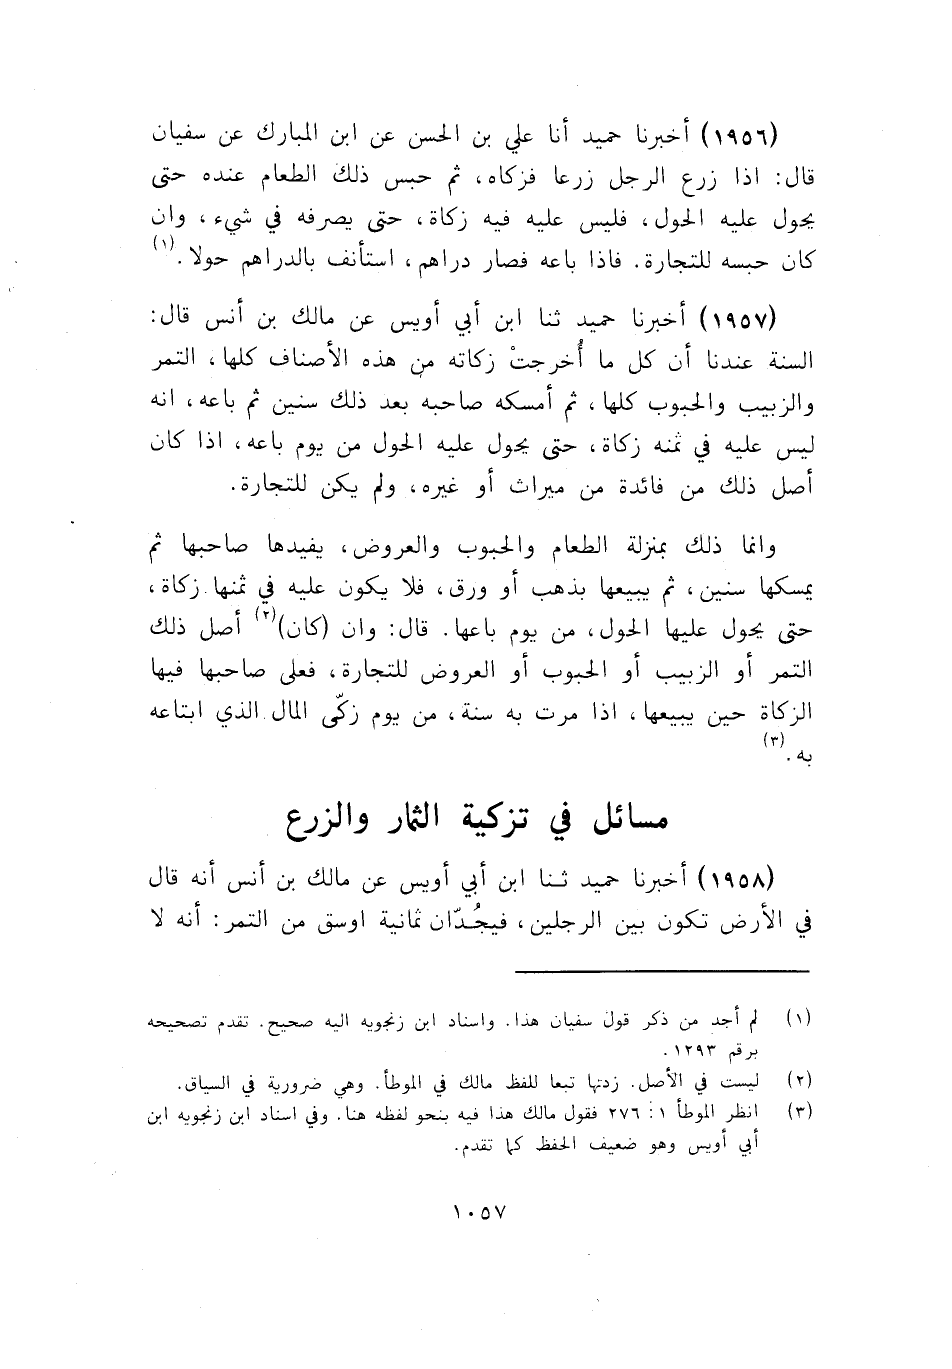 (١٩٥٦) أخبرنا حميد أنا علي بن الحسن عن ابن المبارك عن سفيان
قال: اذا زرع الرجل زرعا فزكاه، ثم حبس ذلك الطعام عنده حتى
يحول عليه الحول، فليس عليه فيه زكاة، حتى يصرفه في شيء، وان
كان حبسه للتجارة. فاذا باعه فصار دراهم، استأنف بالدراهم حولا.(١)
(١٩٥٧) أخبرنا حميد ثنا ابن أبي أويس عن مالك بن أنس قال:
السنة عندنا أن كل ما أُخرجتْ زكاته من هذه الأصناف كلها، التمر
والزبيب والحبوب كلها، ثم أمسكه صاحبه بعد ذلك سنين ثم باعه، انه
ليس عليه في ثمنه زكاة، حتى يحول عليه الحول من يوم باعه، اذا كان
أصل ذلك من فائدة من ميراث أو غيره، ولم يكن للتجارة.
وانما ذلك بمنزلة الطعام والحبوب والعروض، يفيدها صاحبها ثم
يمسكها سنين، ثم يبيعها بذهب أو ورق، فلا يكون عليه في ثمنها زكاة،
حتى يحول عليها الحول، من يوم باعها. قال: وان (كان)(٢) أصل ذلك
التمر أو الزبيب أو الحبوب أو العروض للتجارة، فعلى صاحبها فيها
الزكاة حين يبيعها، اذا مرت به سنة، من يوم زكّى المال الذي ابتاعه
به.(٣)
مسائل في تزكية الثمار والزرع
(١٩٥٨) أخبرنا حميد ثنا ابن أبي أويس عن مالك بن أنس أنه قال
في الأرض تكون بين الرجلين، فيجُدّان ثمانية اوسق من التمر: أنه لا
(١) لم أجد من ذكر قول سفيان هذا. واسناد ابن زنجويه اليه صحيح. تقدم تصحيحه
برقم ١٢٩٣.
(٢) ليست في الأصل. زدتها تبعا للفظ مالك في الموطأ. وهي ضرورية في السياق.
(٣) انظر الموطأ ١: ٢٧٦ فقول مالك هذا فيه بنحو لفظه هنا. وفي اسناد ابن زنجويه ابن
أبي أويس وهو ضعيف الحفظ كما تقدم.
١٠٥٧